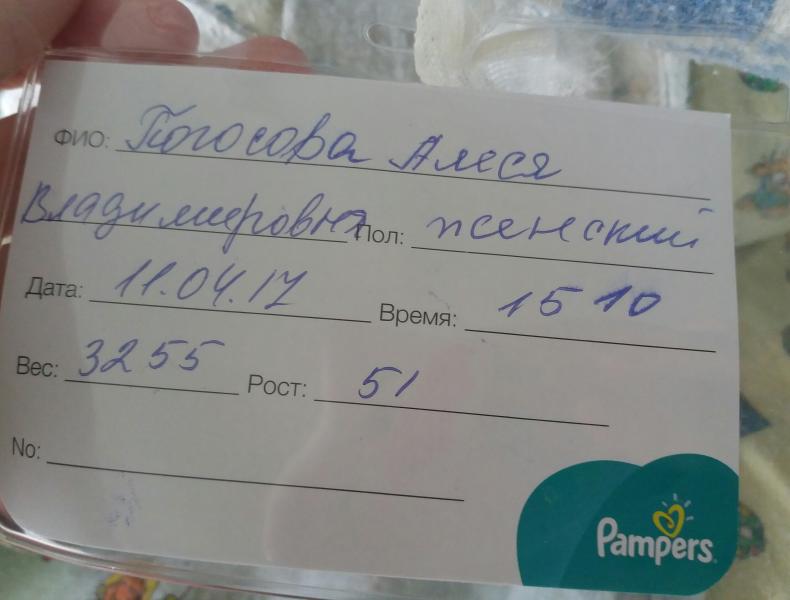 ФИО: Погосова Алеся
Владимировна Пол: женский
Дата: 11.04.17 Время: 15 10
Вес: 3255 Рост: 51
No:
Pampers